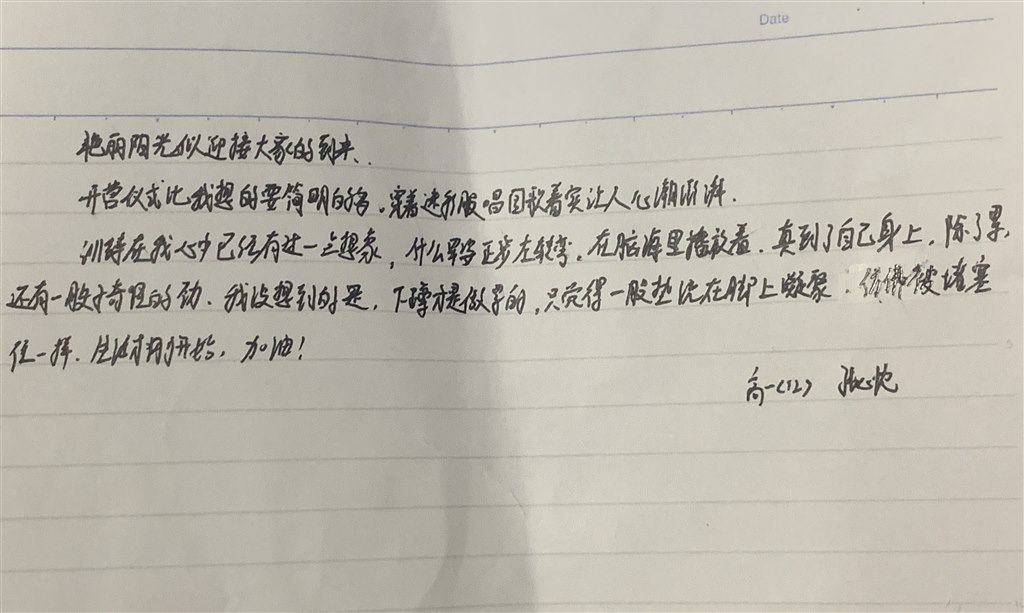 Date
艳丽阳光似迎接大家的到来.
开营仪式比我想的要简明的多,穿着迷彩服唱国歌着实让人心潮澎湃.
训在我心中已经有过一点想象,什么军姿正步左转弯,在脑海里播放着.真到了自己身上,除了累,
还有一股奇怪的劲.我没想到的是,下蹲才是最的,只觉得一股在脚上凝聚.被堵塞
住一样.刚开始,加油!
高一(12)